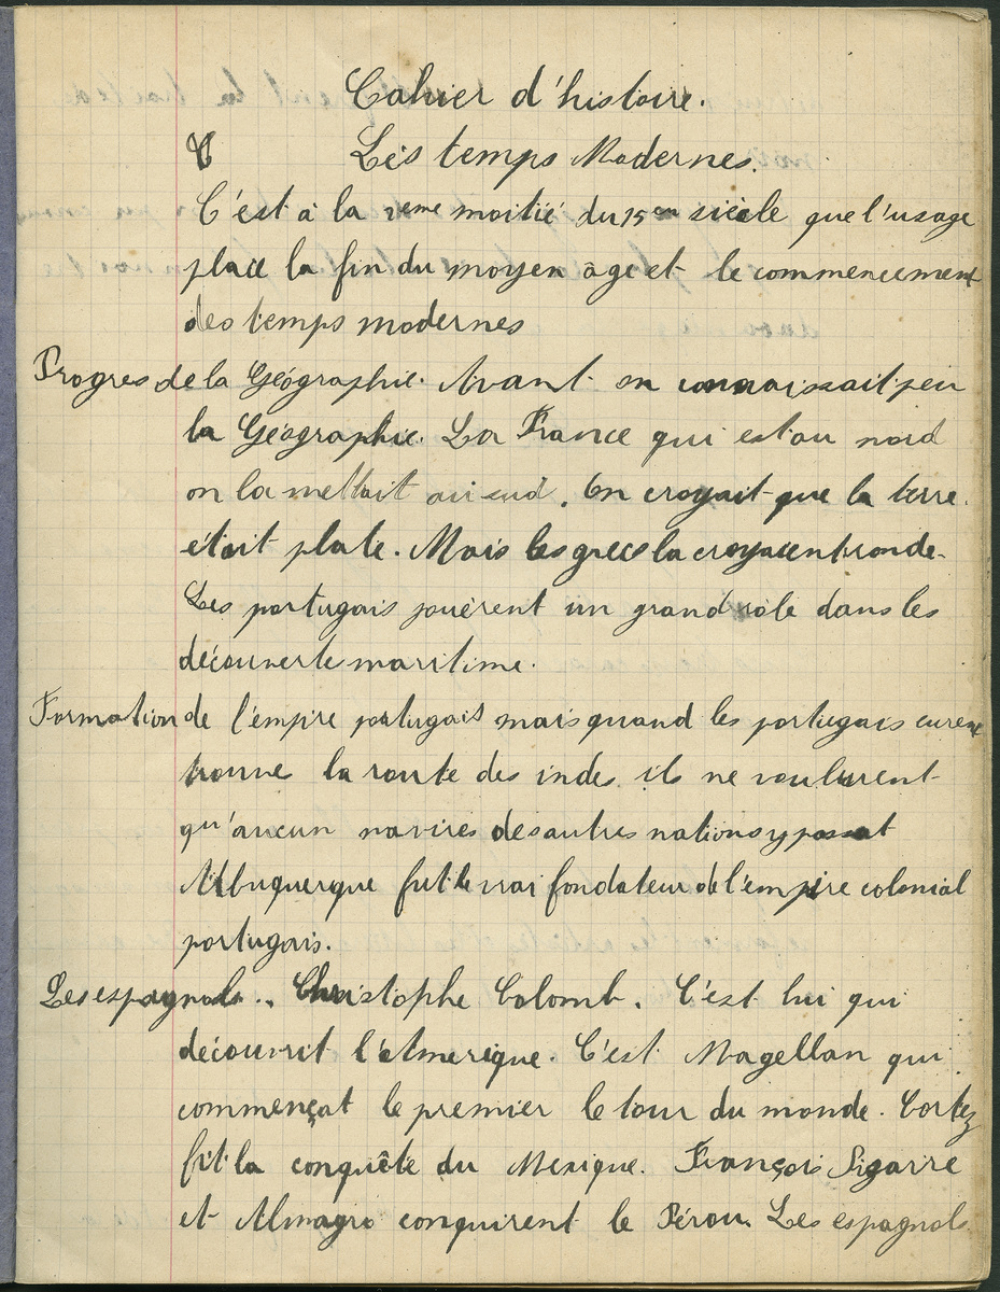 Cahier d'histoire.
Les temps Modernes.
C'est à la 2eme moitié du 15em siècle que l'usage
place la fin du moyen âge et le commencement
des temps modernes
Progres de la Géographie. Avant on connaissait peu
la Géographie. La France qui est au nord
on la mettait au sud. On croyait que la terre
était plate. Mais les grecs la croyaient ronde.
Les portugais jouèrent un grand rôle dans les
découverte maritime.
Formation de l'empire portugais mais quand les portugais eurent
trouve la route des indes ils ne voulurent
qu'aucun navires des autres nations y passat
Albuquerque fut le vrai fondateur de l'empire colonial
portugais.
Les espagnols. Christophe Colomb. C'est lui qui
découvrit l'Amerique. C'est Magellan qui
commençat le premier le tour du monde. Cortez
fit la conquête du Mexique. François Pizarre
et Almagro conquirent le Pérou. Les espagnols